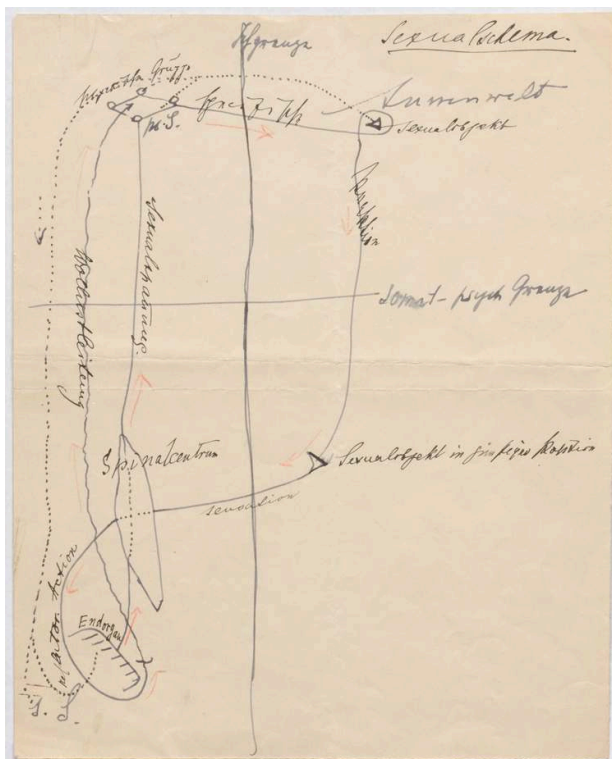 Sexualschema.
Ichgrenze
psychische Grupp
ps. S.
Spezifisch
Aussenwelt
Sexualobjekt
Reaktion
Sexualspannung.
Wollustleitung
Somat-psych Grenze
Spinalcentrum
Sexualobjekt in günstiger Position
sensation
Action
Endorgan